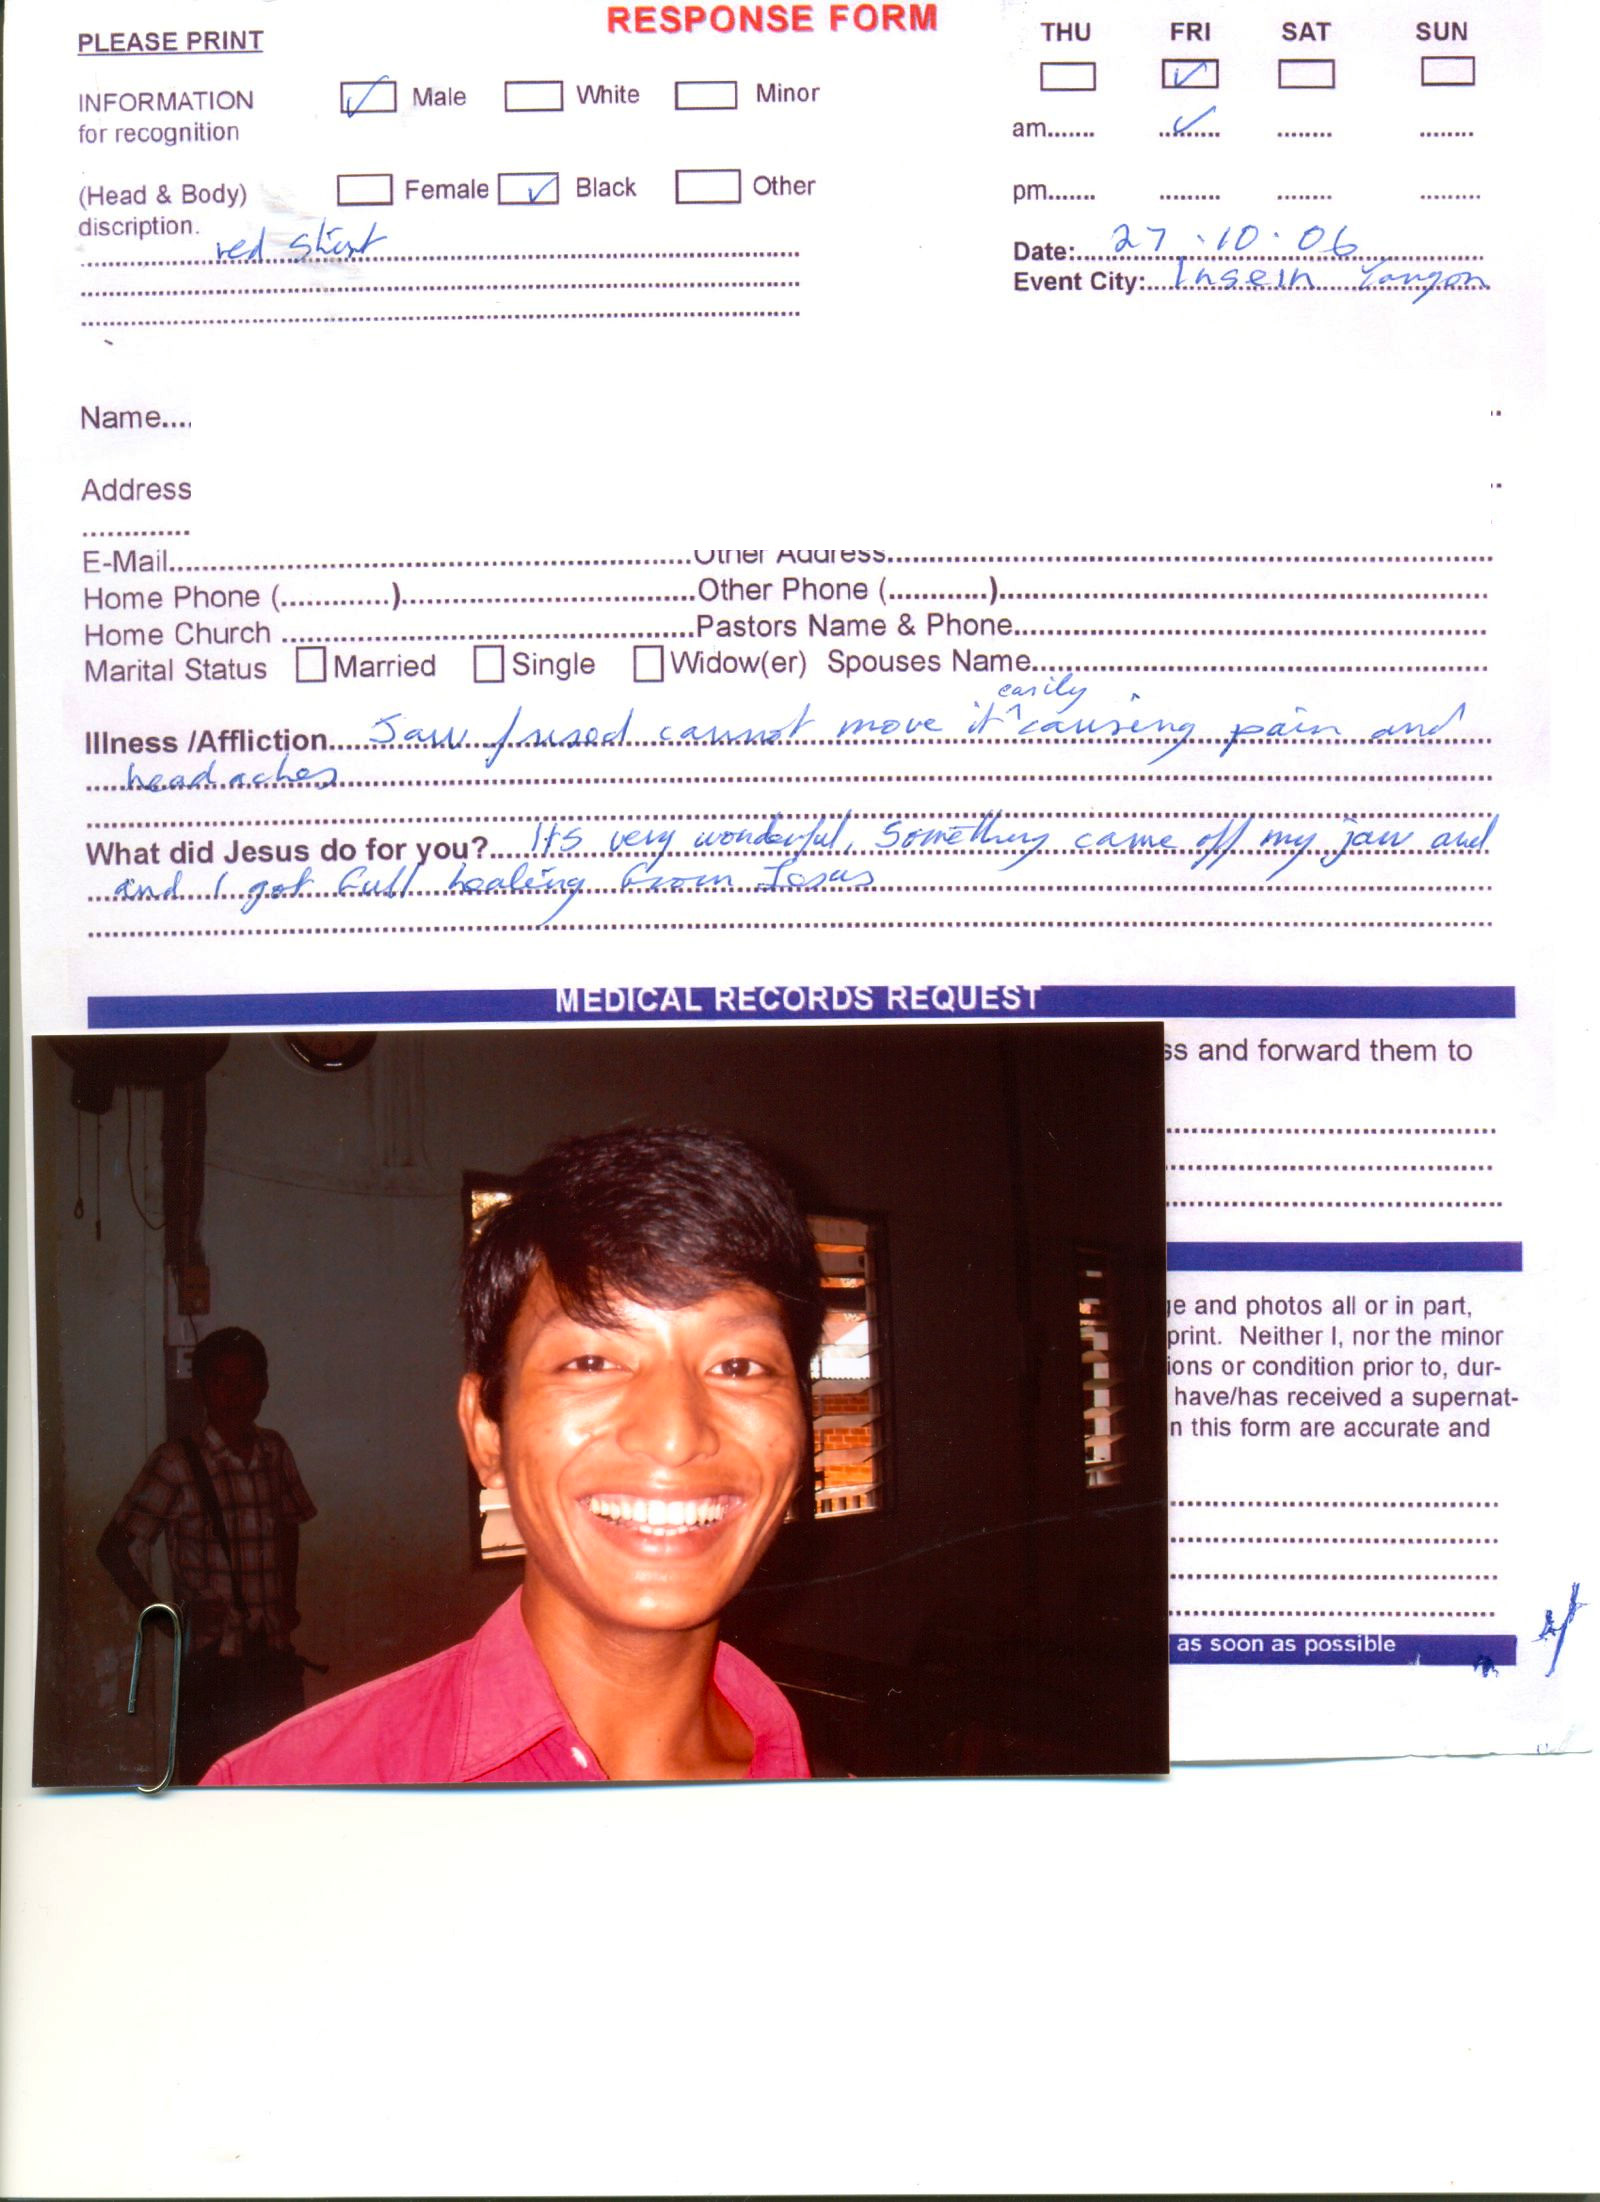 RESPONSE FORM
PLEASE PRINT
THU FRI SAT SUN
INFORMATION
for recognition
Male White Minor
am....... ......... ........ ........
(Head & Body)
discription.
Female Black Other
pm....... ......... ........ .........
red shirt
Date: 27.10.06
Event City: Insein Yangon
Name....
Address
E-Mail Other Address
Home Phone (.............) Other Phone (............)
Home Church Pastors Name & Phone
Marital Status Married Single Widow(er) Spouses Name
easily
Illness /Affliction Jaw fused cannot move it ^ causing pain and
headaches
What did Jesus do for you? Its very wonderful, Something came off my jaw and
and I got full healing from Jesus
MEDICAL RECORDS REQUEST
ss and forward them to
e and photos all or in part,
print. Neither I, nor the minor
ions or condition prior to, dur-
have/has received a supernat-
n this form are accurate and
as soon as possible